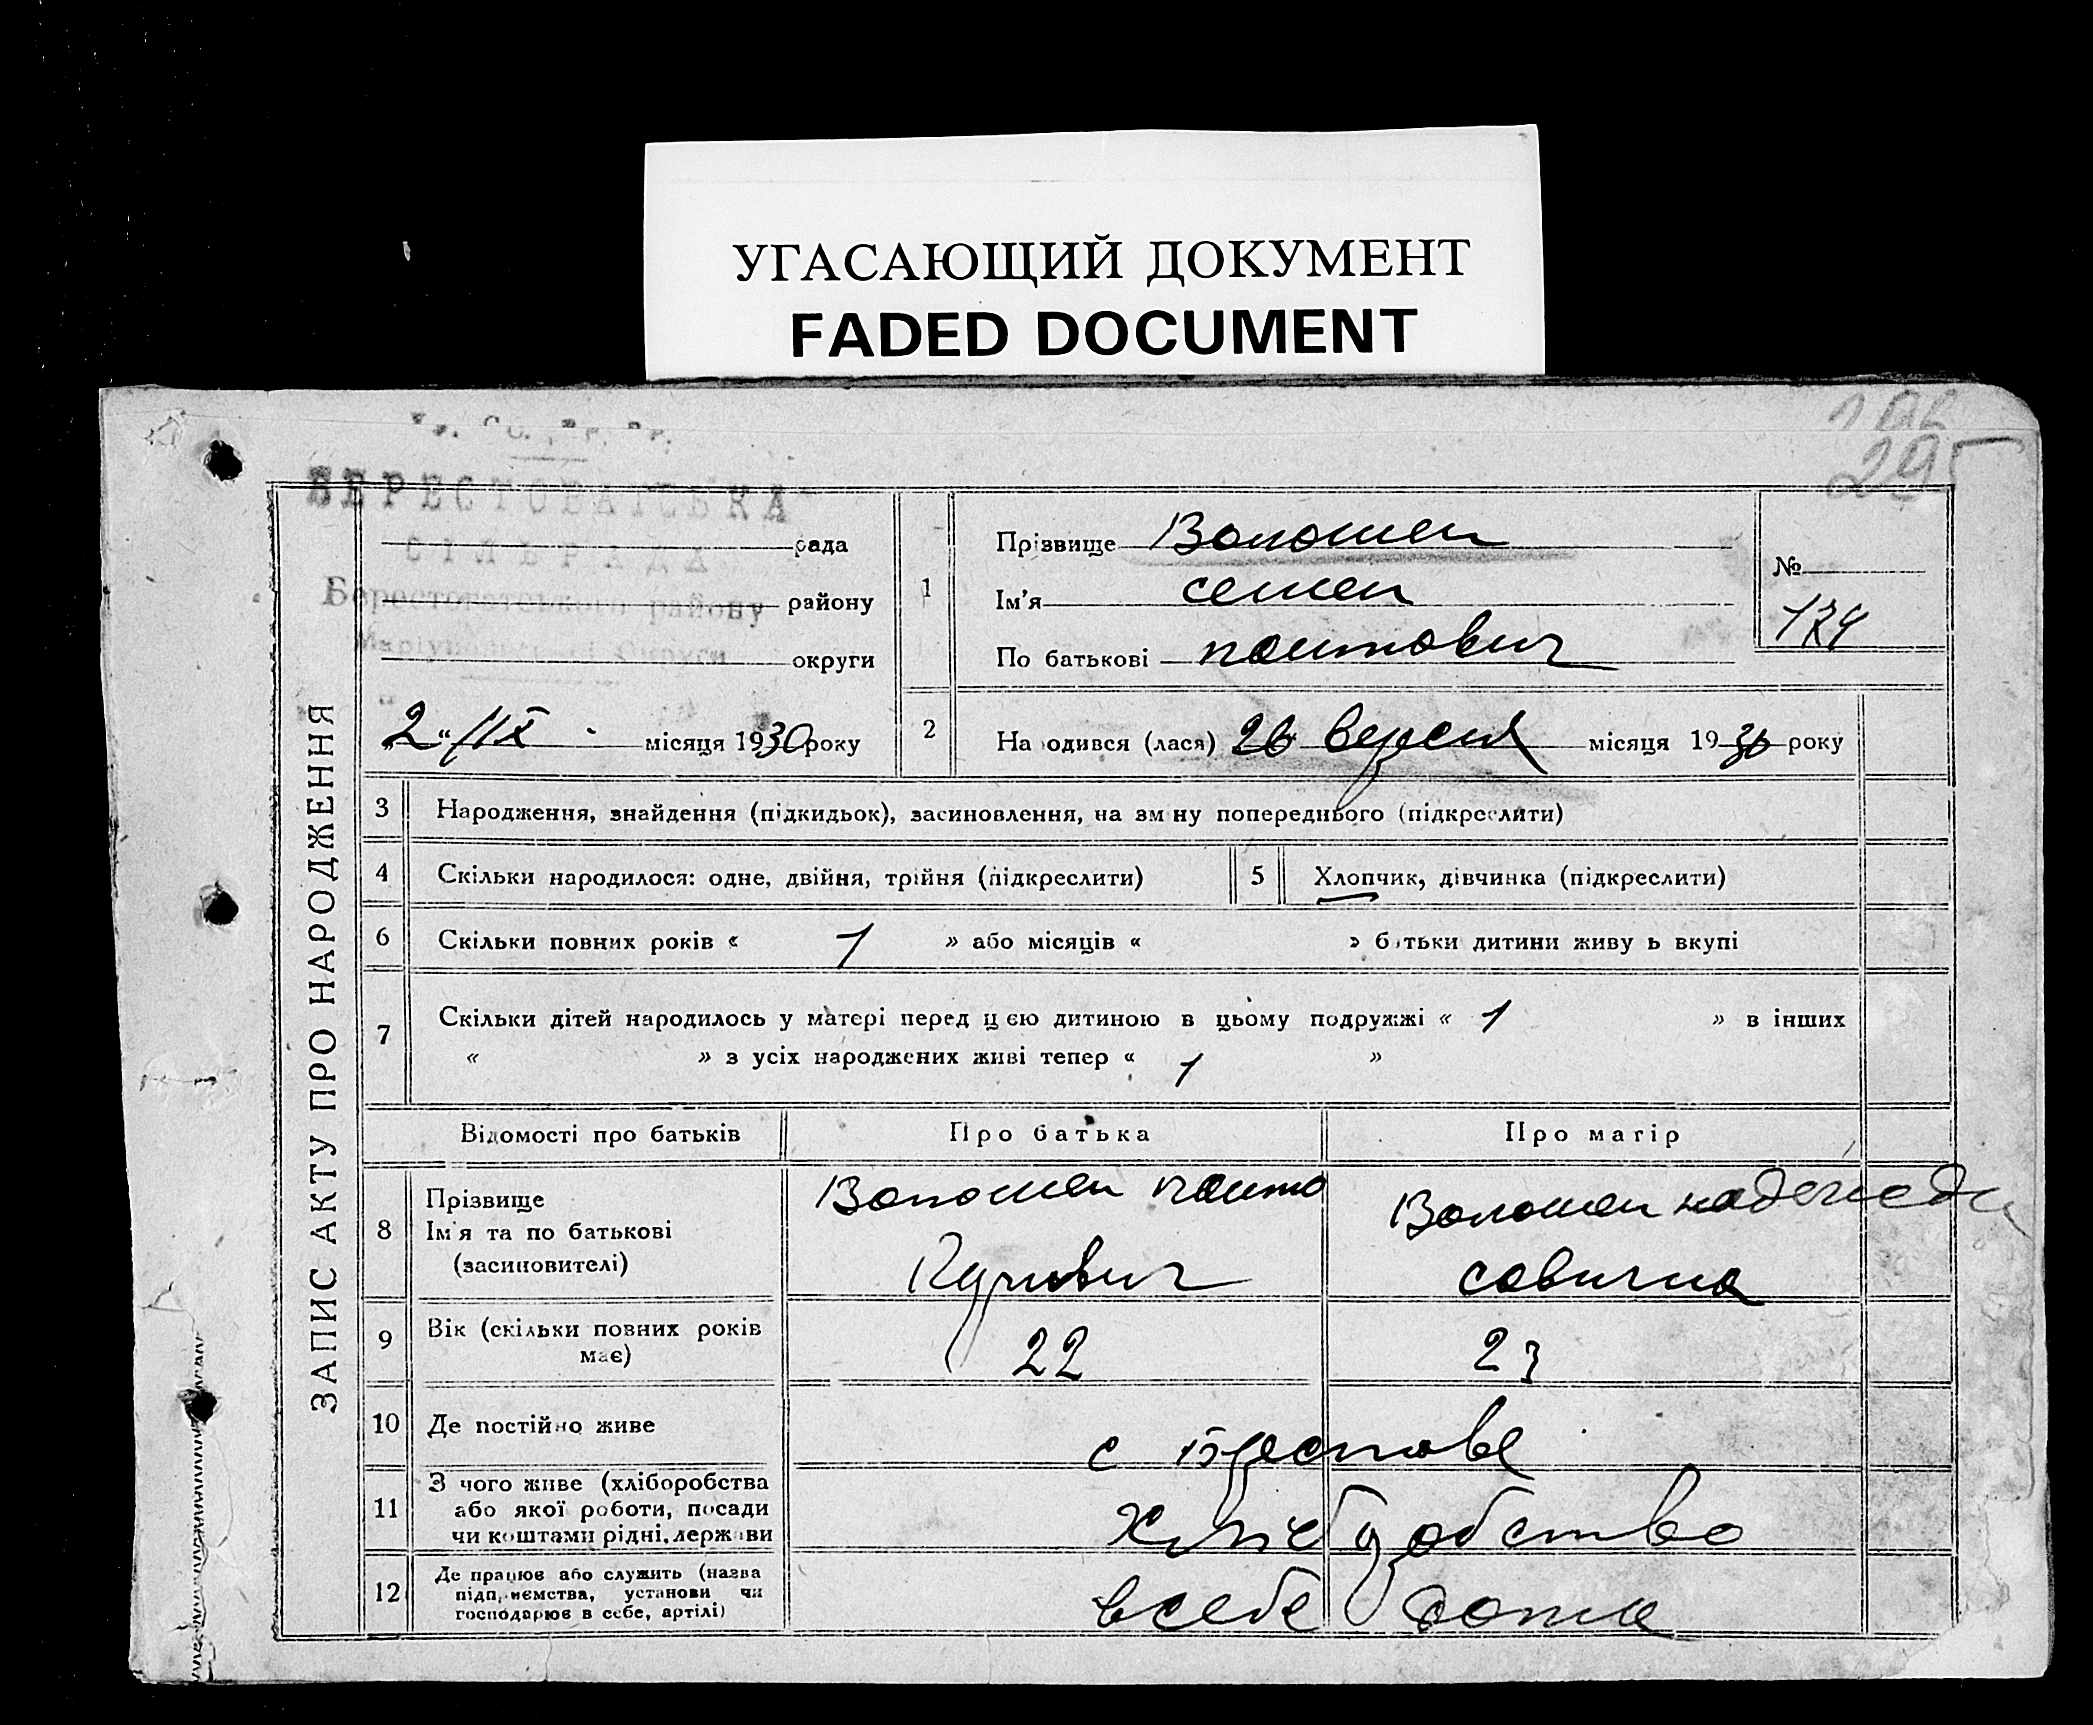 УГАСАЮЩИЙ ДОКУМЕНТ
FADED DOCUMENT
295
БЕРЕСТОВАТСЬКА
СІЛЬРАДА
рада
Берестоватського району
району
Маріупольської Округи
округи
„2“ /IX місяця 1930 року
ЗАПИС АКТУ ПРО НАРОДЖЕННЯ
1
Прізвище Волошен
Ім'я семен
По батькові
№
174
2
Народився (лася) 26 вересня місяця 1930 року
3 Народження, знайдення (підкидьок), засиновлення, на зміну попереднього (підкреслити)
4 Скільки народилося: одне, двійня, трійня (підкреслити)
5 Хлопчик, дівчинка (підкреслити)
6 Скільки повних років « 1 » або місяців « » батьки дитини живуть вкупі
7 Скільки дітей народилось у матері перед цією дитиною в цьому подружжі « 1 » в інших
« » з усіх народжених живі тепер « 1 »
Відомості про батьків
Про батька
Про матір
8 Прізвище
Ім'я та по батькові
(засиновителі)
Волошен
Волошен
савична
9 Вік (скільки повних років
має)
22
23
10 Де постійно живе
с Берестове
11 З чого живе (хліборобства
або якої роботи, посади
чи коштами рідні, держави
хліборобство
12 Де працює або служить (назва
підприємства, установи чи
господарює в себе, артілі)
всебе дома